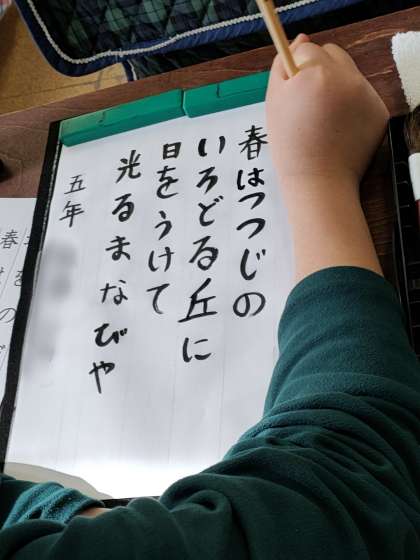 春はつつじの
いろどる丘に
日をうけて
光るまなびや
五年
春